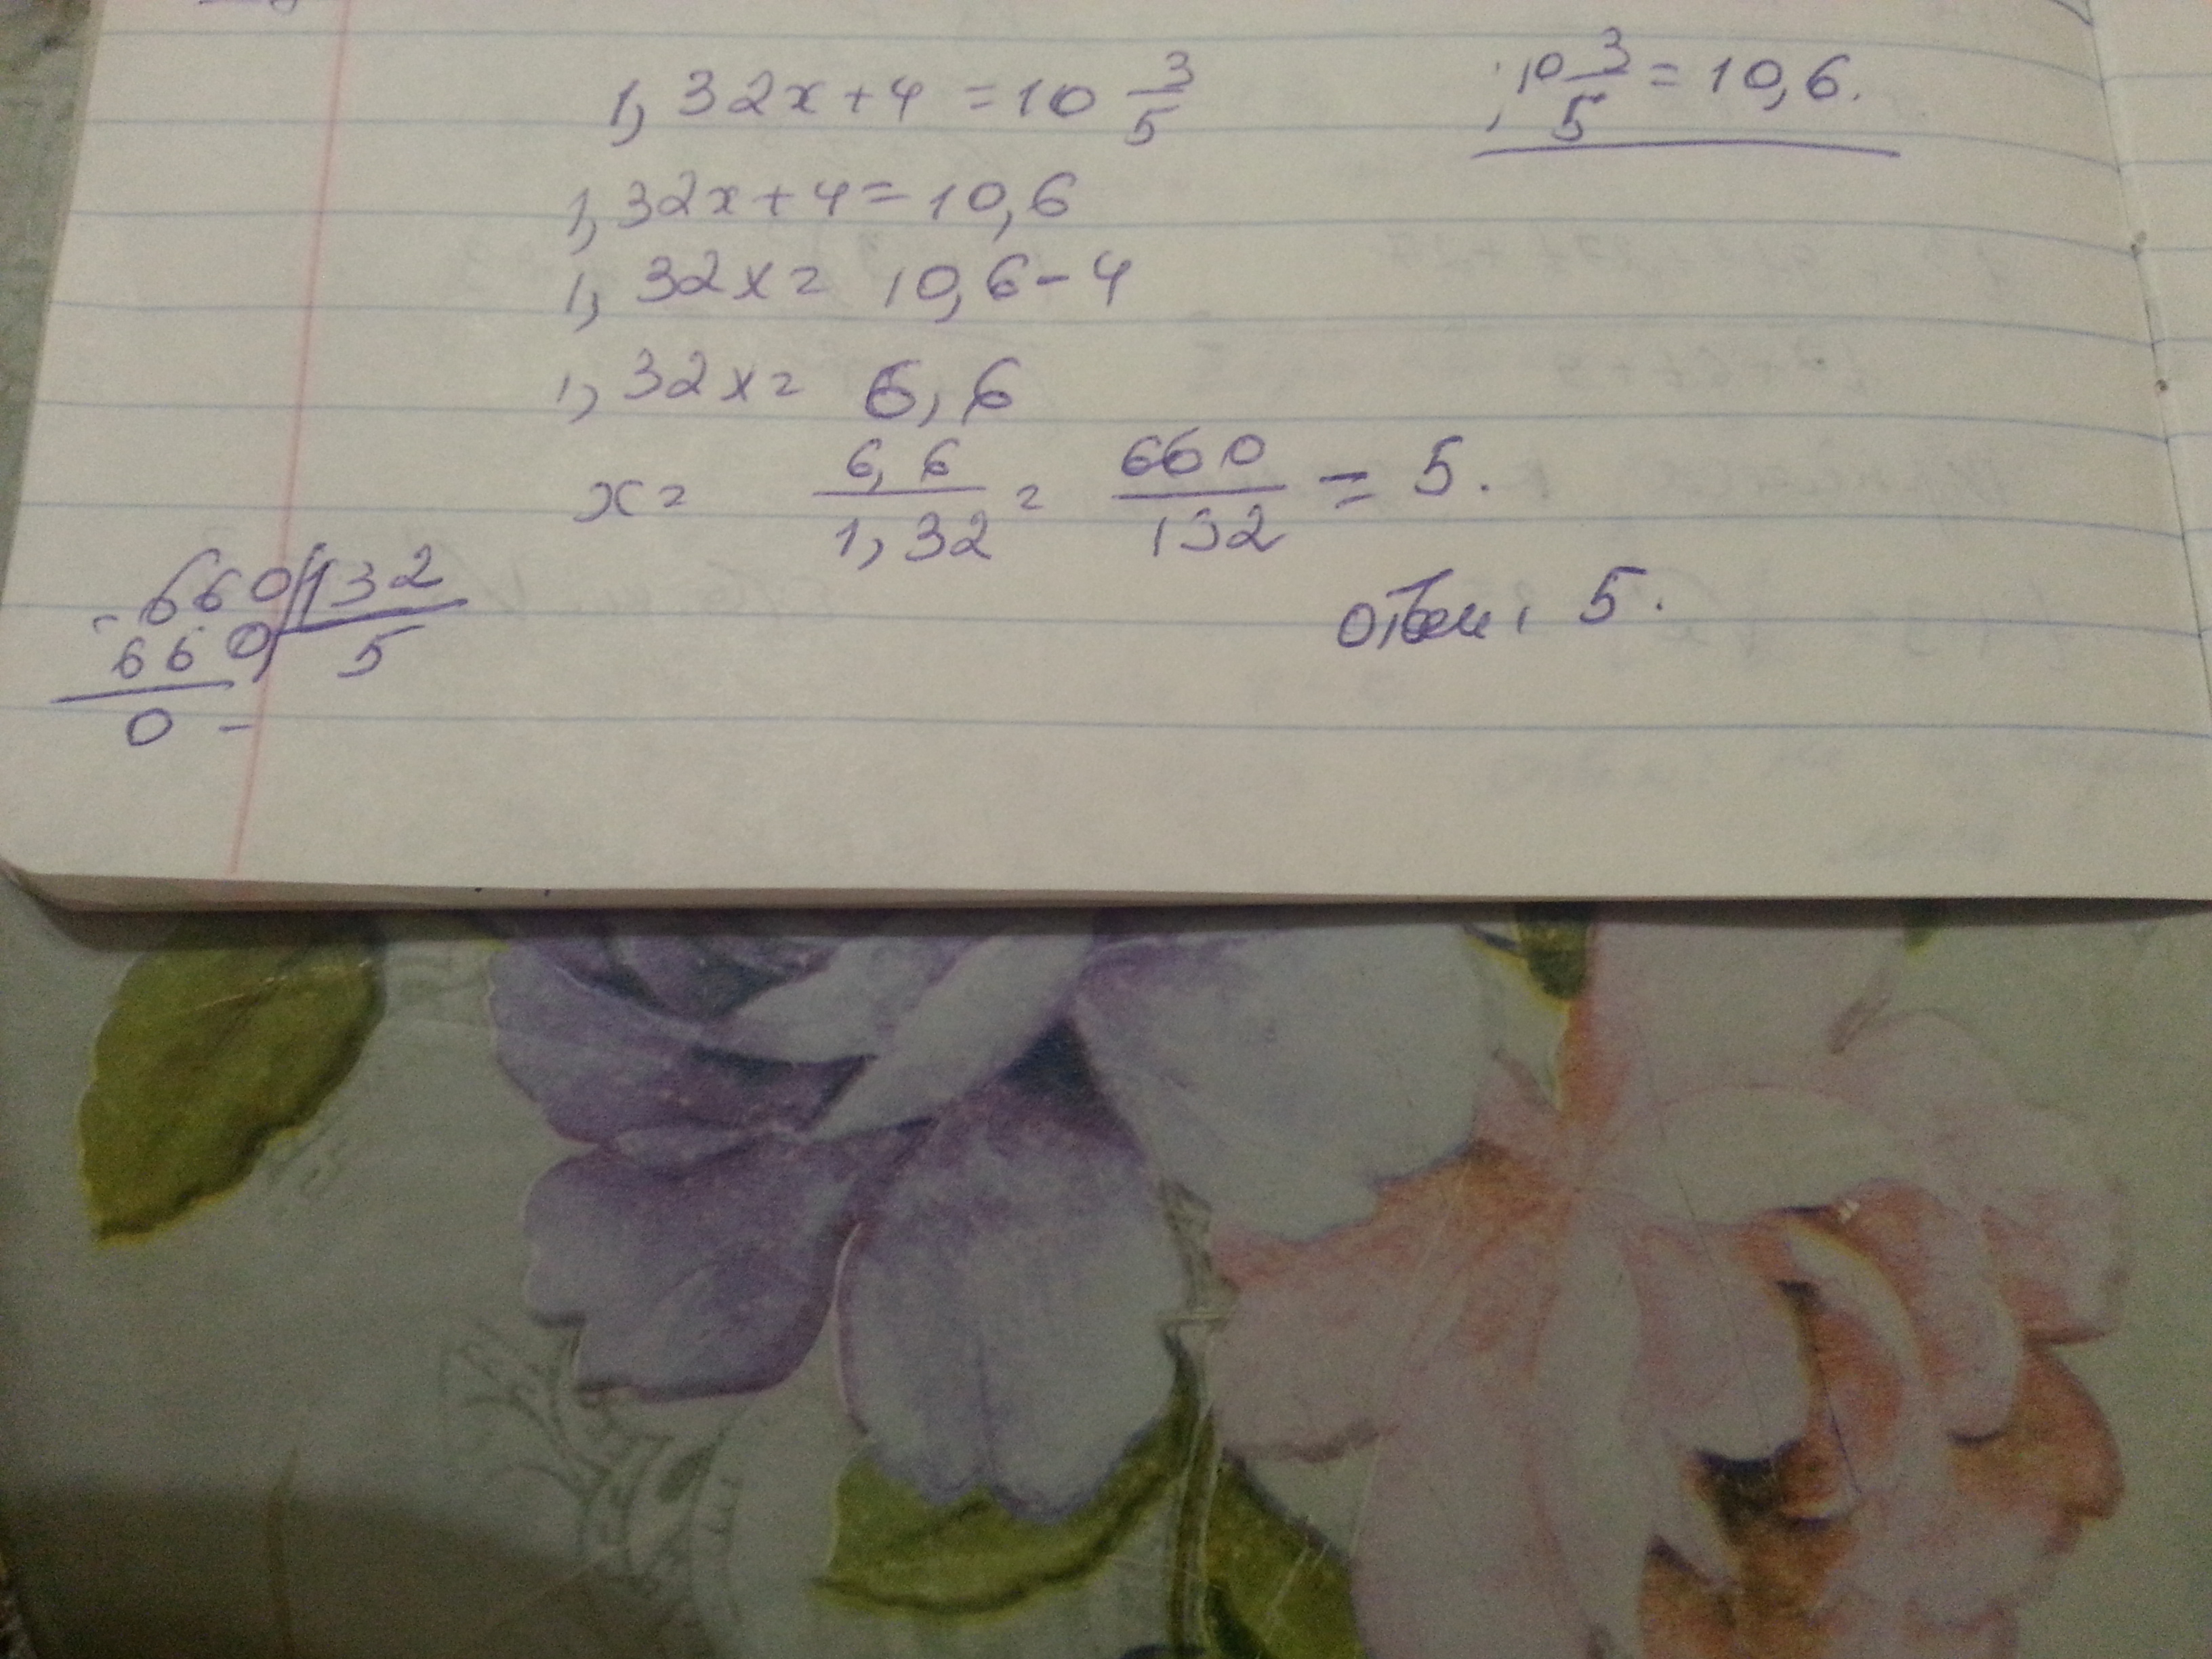 1,32x+4=10 3/5 ; 10 3/5 = 10,6.
1,32x+4=10,6
1,32x= 10,6-4
1,32x= 6,6
x= 6,6/1,32 = 660/132 = 5.
Ответ, 5.
-660 | 132
660 | 5
0 -